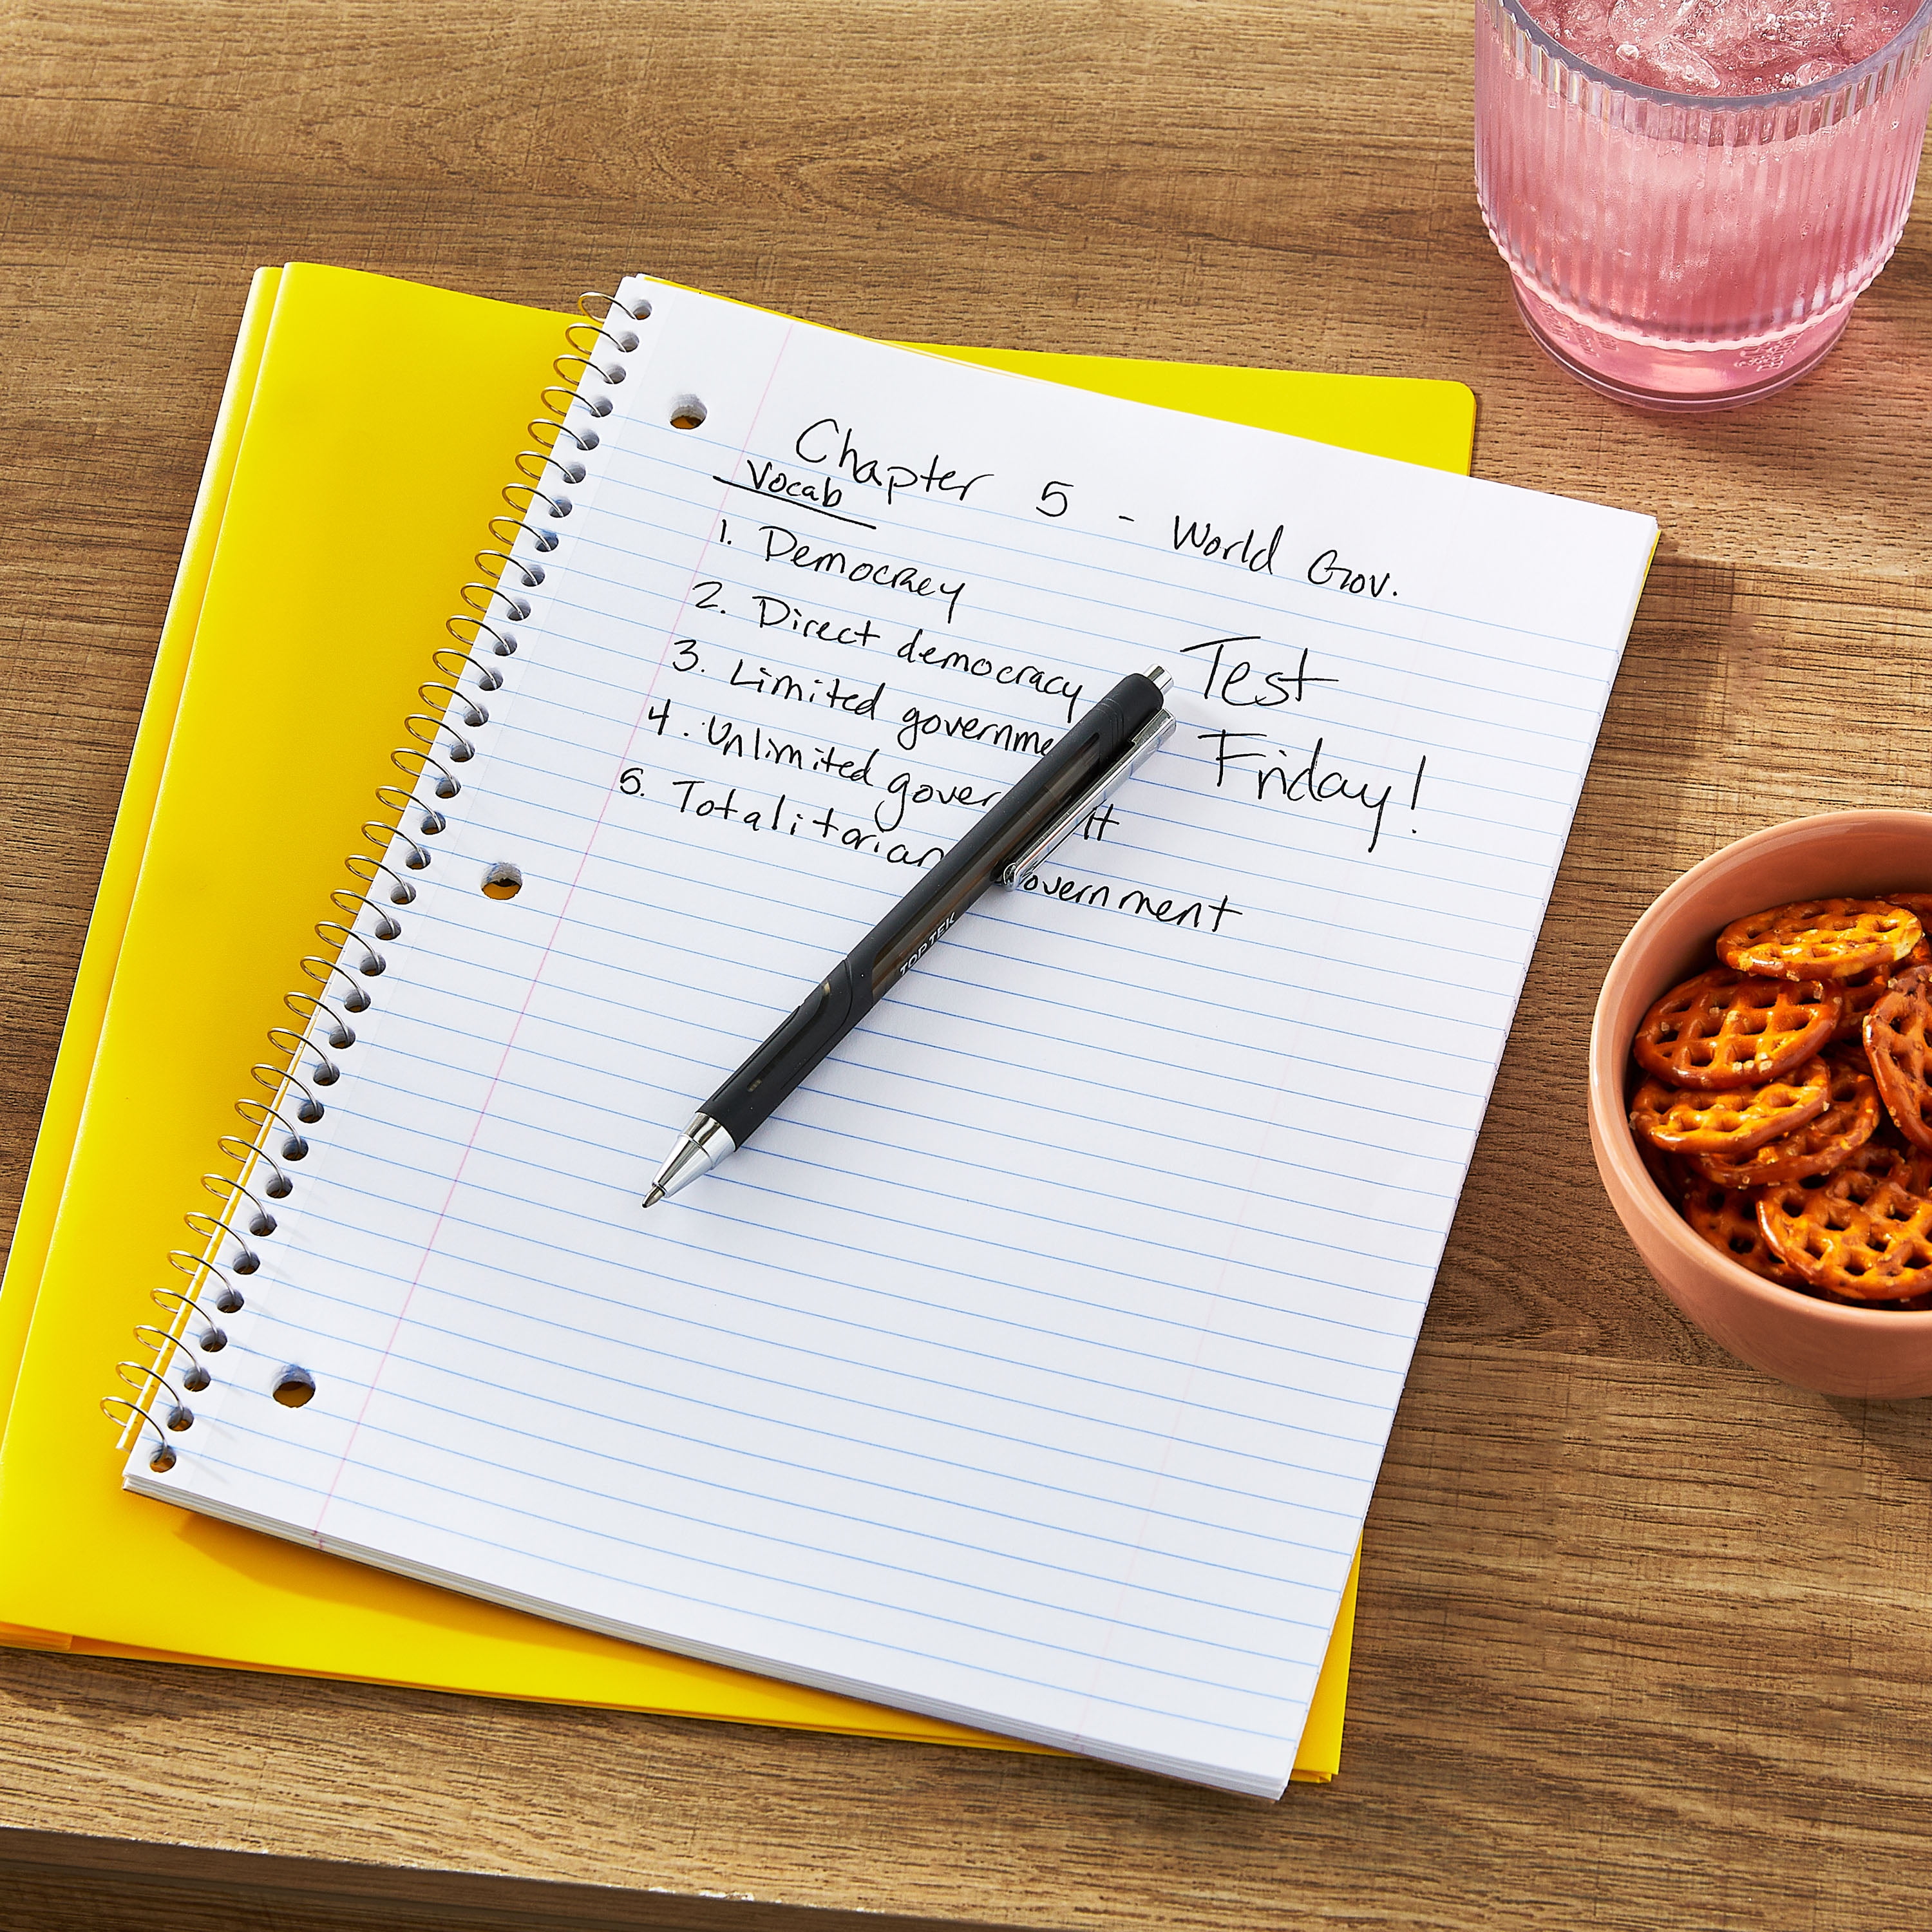 Chapter 5 - World Gov.
Vocab
1. Democracy
2. Direct democracy
3. Limited governme
4. Unlimited gover nt
5. Totalitorian overnment
Test
Friday!
TOP TEK